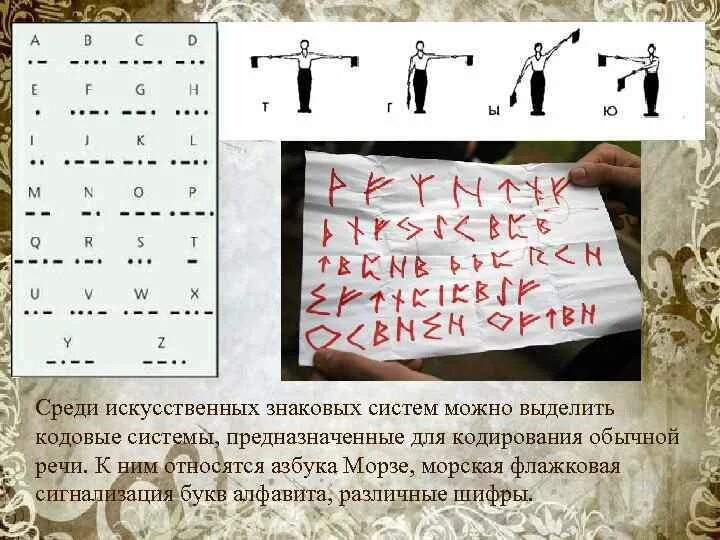 A B C D
E F G H
I J K L
M N O P
Q R S T
U V W X
Y Z
Т Г Ы Ю
Среди искусственных знаковых систем можно выделить
кодовые системы, предназначенные для кодирования обычной
речи. К ним относятся азбука Морзе, морская флажковая
сигнализация букв алфавита, различные шифры.